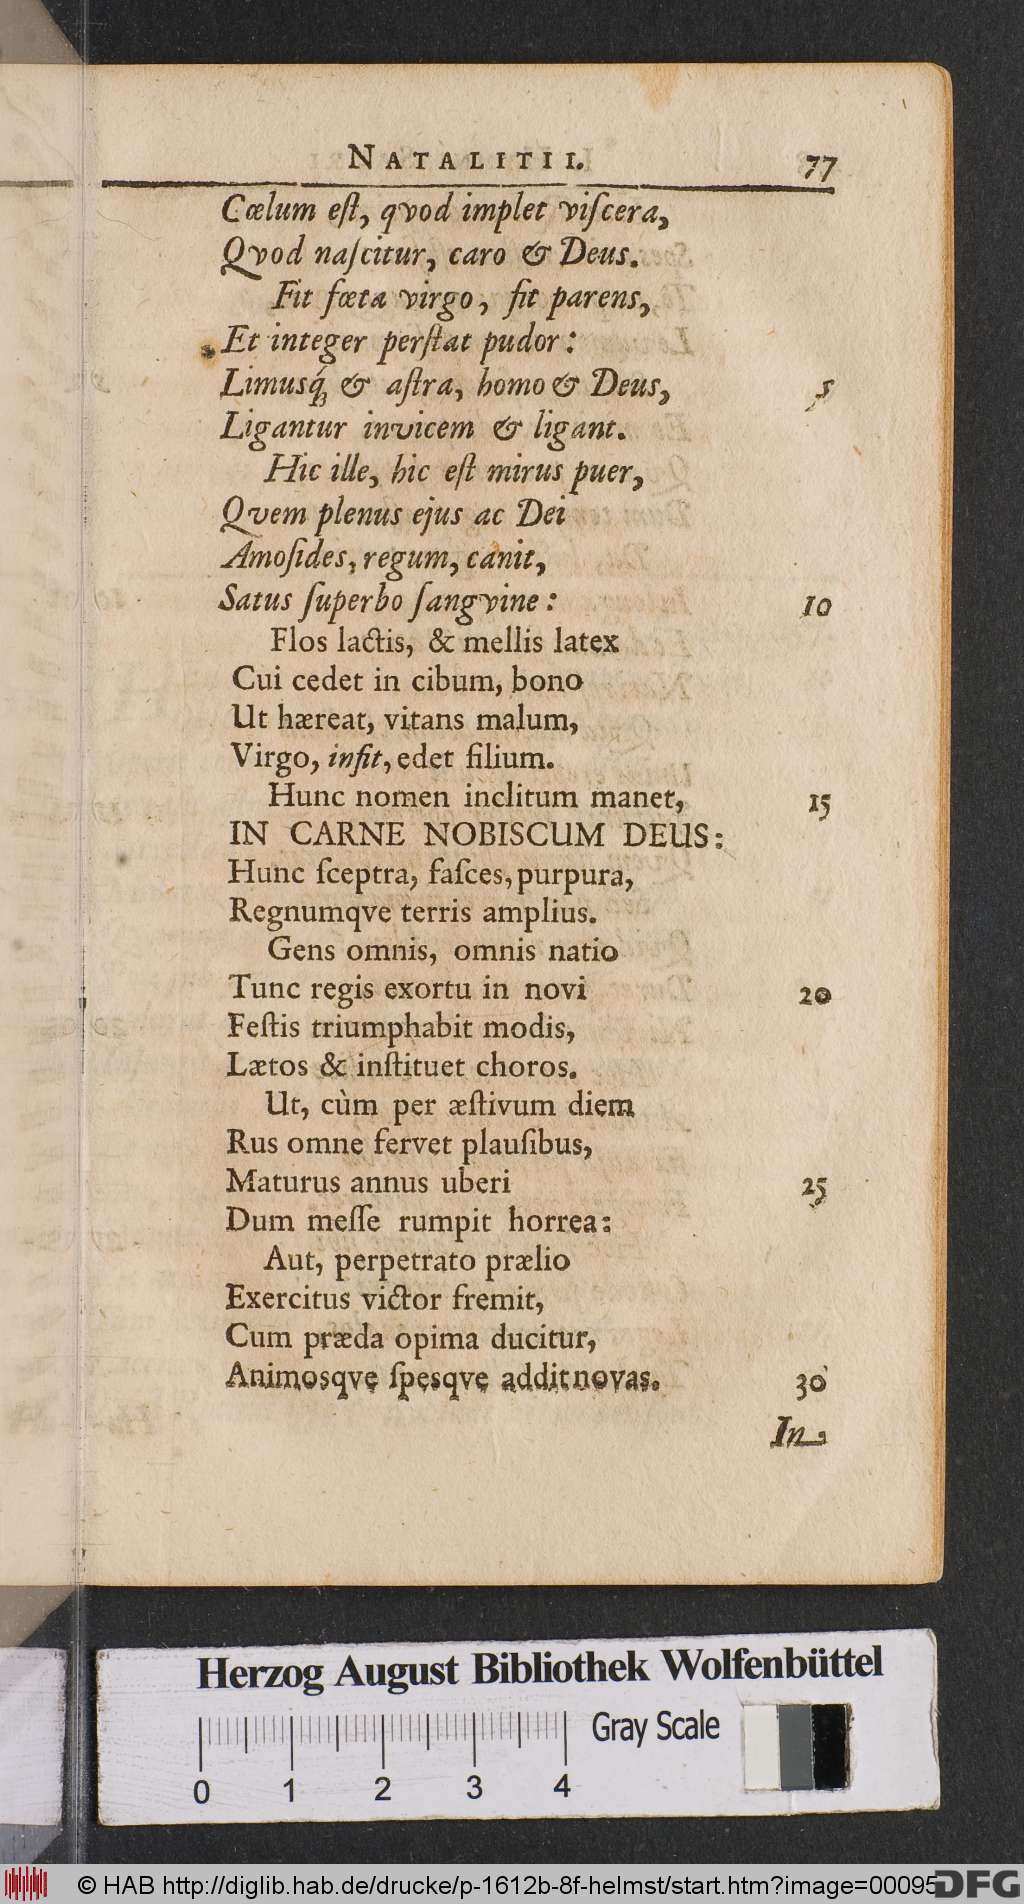 NATALITII. 77
Cœlum eſt, qvod implet viſcera,
Qvod naſcitur, caro & Deus.
Fit fœta virgo, fit parens,
Et integer perſtat pudor:
Limusq́; & aſtra, homo & Deus, 5
Ligantur invicem & ligant.
Hic ille, hic eſt mirus puer,
Qvem plenus ejus ac Dei
Amoſides, regum, canit,
Satus ſuperbo ſangvine: 10
Flos lactis, & mellis latex
Cui cedet in cibum, bono
Ut hæreat, vitans malum,
Virgo, infit, edet filium.
Hunc nomen inclitum manet, 15
IN CARNE NOBISCUM DEUS:
Hunc ſceptra, faſces, purpura,
Regnumqve terris amplius.
Gens omnis, omnis natio
Tunc regis exortu in novi 20
Feſtis triumphabit modis,
Lætos & inſtituet choros.
Ut, cùm per æſtivum diem
Rus omne fervet plauſibus,
Maturus annus uberi 25
Dum meſſe rumpit horrea:
Aut, perpetrato prælio
Exercitus victor fremit,
Cum præda opima ducitur,
Animosqve ſpesqve addit novas. 30
In
Herzog August Bibliothek Wolfenbüttel
Gray Scale
0 1 2 3 4
© HAB http://diglib.hab.de/drucke/p-1612b-8f-helmst/start.htm?image=00095
DFG